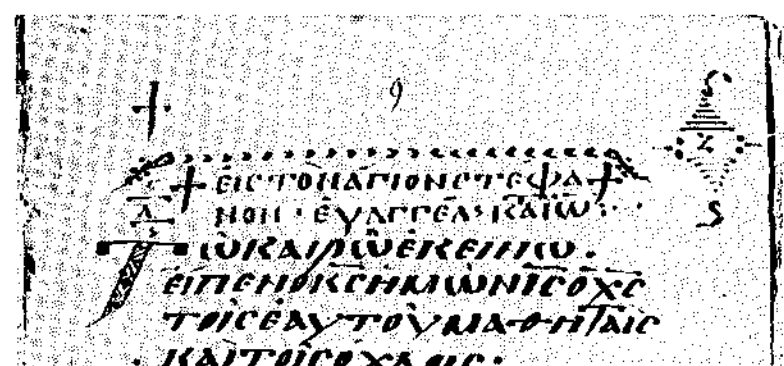 9
+ ΕΙϹ ΤΟΝ ΑΓΙΟΝ ϹΤΕΦΑ +
ΝΟΝ · ΕΥΑΓΓΕΛ ΚΑΙΩ :
ΤΩ ΚΑΙΡΩ ΕΚΕΙΝΩ ·
ΕΙΠΕΝ Ο ΚϹ ΗΜΩΝ ΙϹ Ο ΧϹ
ΤΟΙϹ ΕΑΥΤΟΥ ΜΑΘΗΤΑΙϹ
ΚΑΙ ΤΟΙϹ ΟΧΛΟΙϹ ·